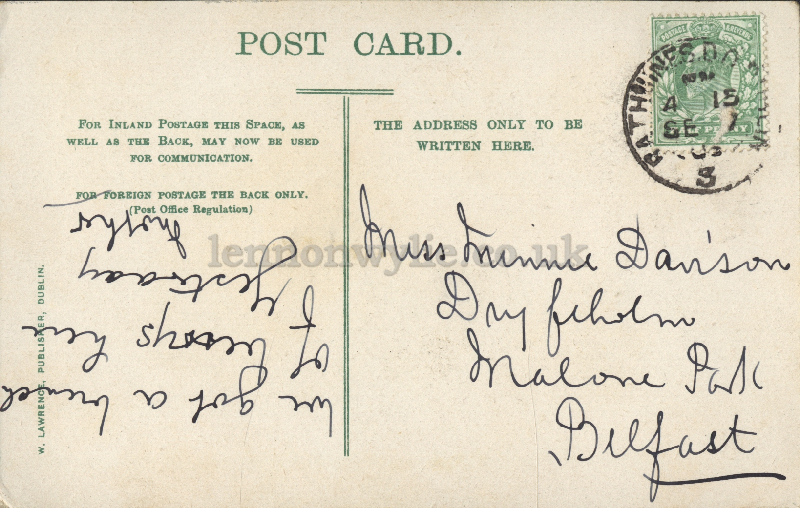 POST CARD.
FOR INLAND POSTAGE THIS SPACE, AS
WELL AS THE BACK, MAY NOW BE USED
FOR COMMUNICATION.
FOR FOREIGN POSTAGE THE BACK ONLY.
(Post Office Regulation)
THE ADDRESS ONLY TO BE
WRITTEN HERE.
RATHMINES.D.O.
4 15
SE 7
3
Miss Minnie Davison
Dryfeholm
Malone Park
Belfast
we got a bunch
of here
Yestraday
Mother
W. LAWRENCE, PUBLISHER, DUBLIN.
lennonwylie.co.uk